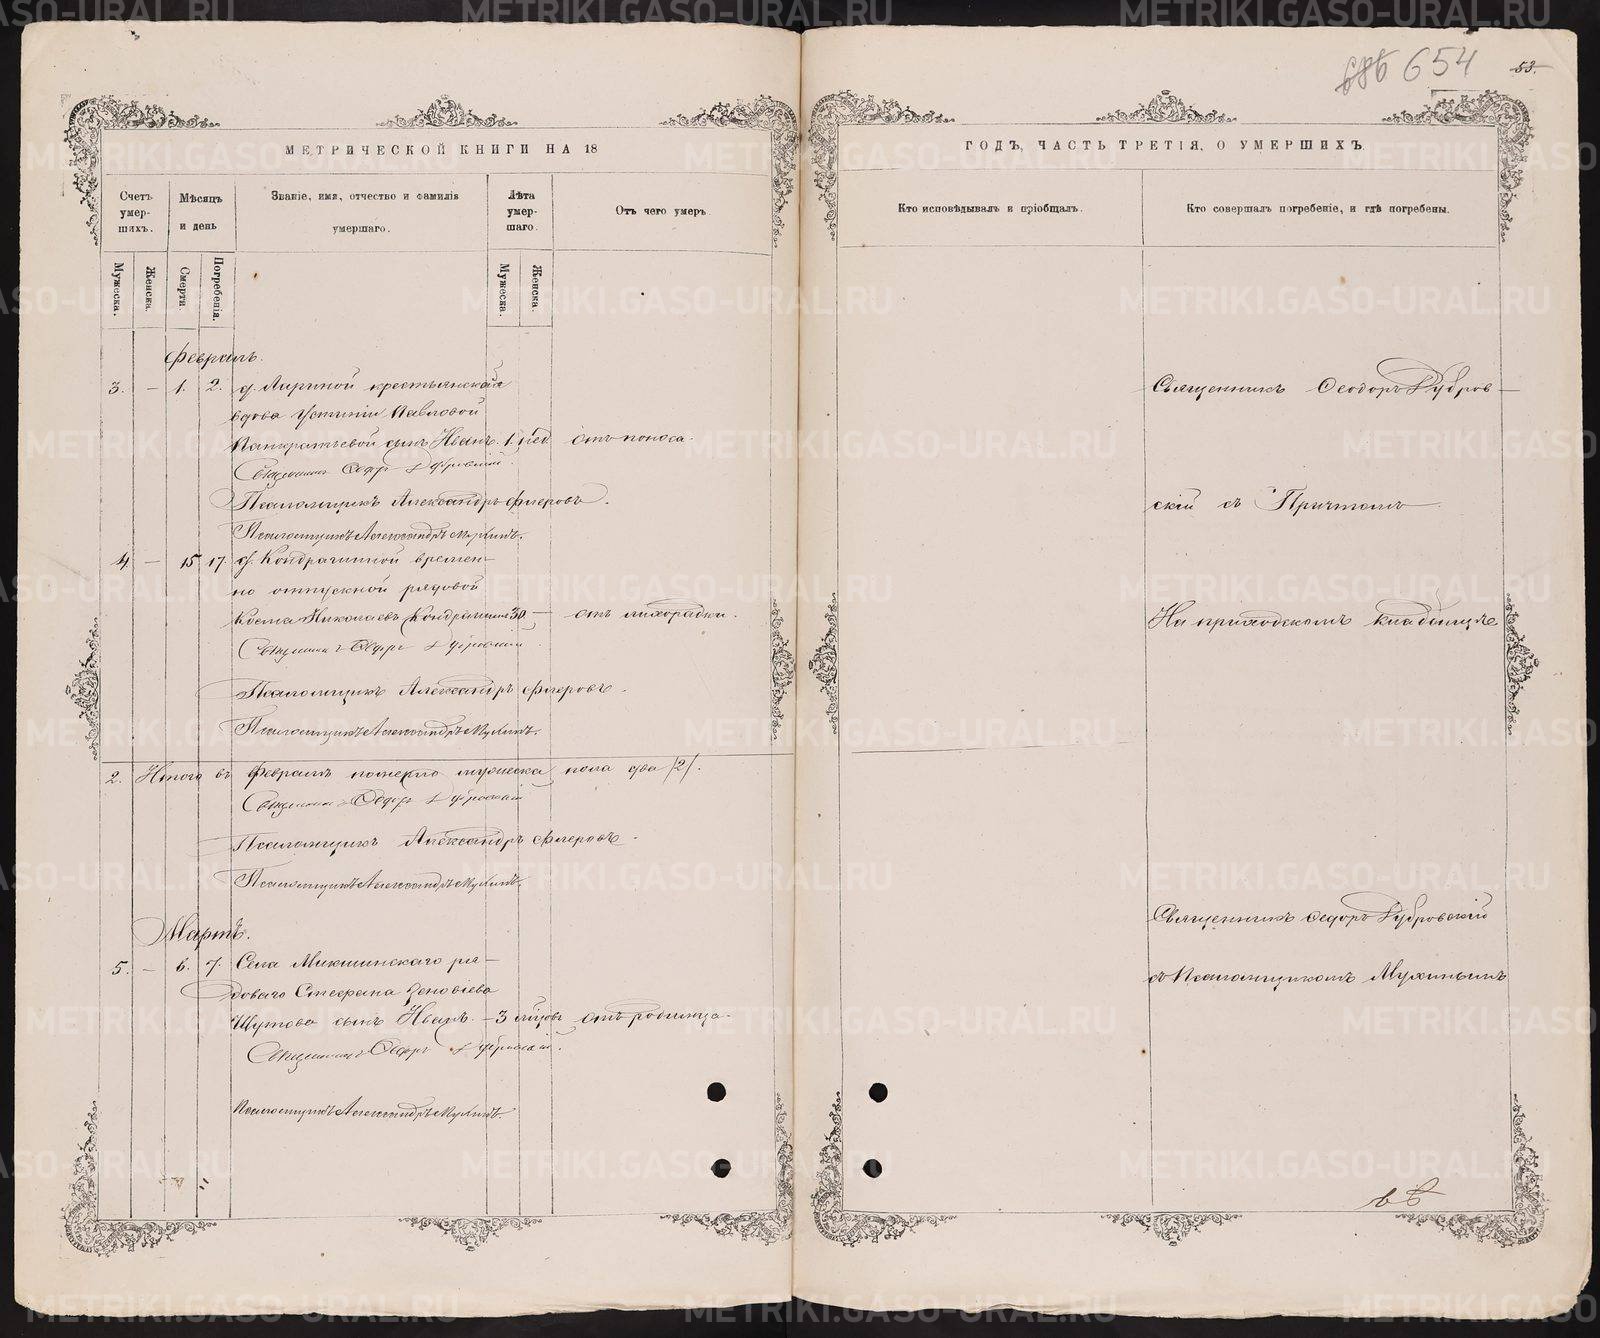 686 654
53.
МЕТРИЧЕСКОЙ КНИГИ НА 18
ГОДЪ, ЧАСТЬ ТРЕТІЯ, О УМЕРШИХЪ
Счетъ умер-шихъ.
Мѣсяцъ и день
Званіе, имя, отчество и фамилія умершаго.
Лѣта умер-шаго.
Отъ чего умеръ.
Кто исповѣдывалъ и пріобщалъ.
Кто совершалъ погребеніе, и гдѣ погребены.
Мужеска.
Женска.
Смерти.
Погребенія.
Мужеска.
Женска.
Февраль.
3. — 1. 2. д. Лариной крестьянская
вдова Устиніи Павловой
Панкратьевой сынъ Иванъ. 1. нед. отъ поноса.
Священникъ Ѳеодоръ Дубровскій.
Псаломщикъ Александръ Флеровъ.
Псаломщикъ Александръ Мухинъ.
4 — 15 17. д. Кондрашиной времен-
но отпускной рядовой
Косма Николаевъ Кондрашинъ 30 — отъ лихорадки.
Священникъ Ѳеодоръ Дубровскій
Псаломщикъ Александръ Флеровъ.
Псаломщикъ Александръ Мухинъ.
2. Итого въ Февралѣ померло мужеска пола два /2/.
Священникъ Ѳеодоръ Дубровскій
Псаломщикъ Александръ Флеровъ.
Псаломщикъ Александръ Мухинъ.
Мартъ.
5. — 6. 7. Села Микшинскаго ря-
доваго Стефана Зеновіева
Шутова сынъ Иванъ. — 3 мѣсяцовъ отъ родимца.
Священникъ Ѳеодоръ Дубровскій.
Псаломщикъ Александръ Мухинъ.
Священникъ Ѳеодоръ Дубров-
скій съ Причтомъ
На приходскомъ кладбищѣ
Священникъ Ѳеодоръ Дубровскій
съ Псаломщикомъ Мухинымъ
METRIKI.GASO-URAL.RU